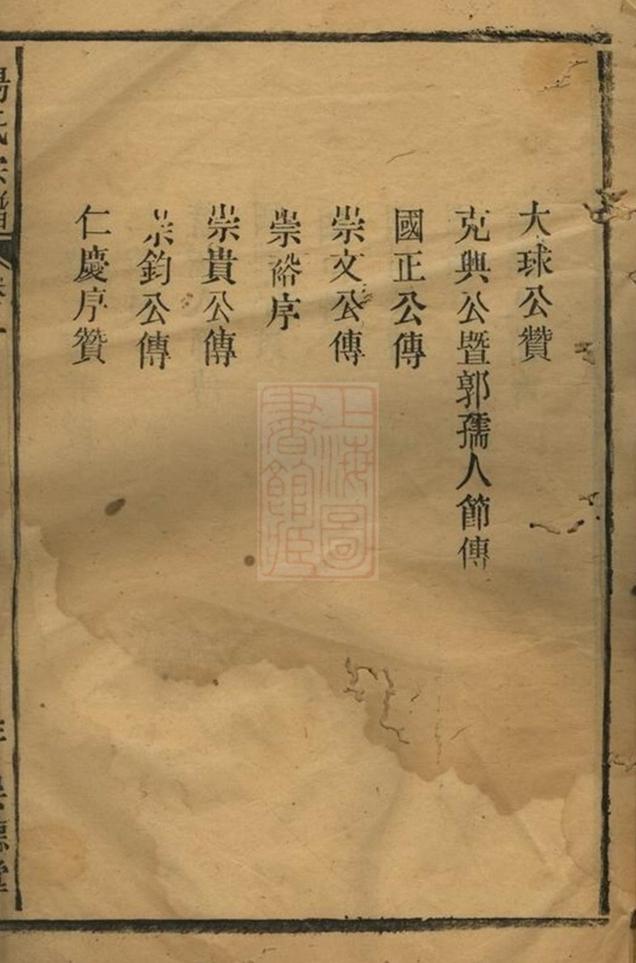 大球公贊
克興公暨郭孺人節傳
國正公傳
崇文公傳
崇裕序
崇貴公傳
崇鈞公傳
仁慶序贊
氏宗譜
上海圖書館藏